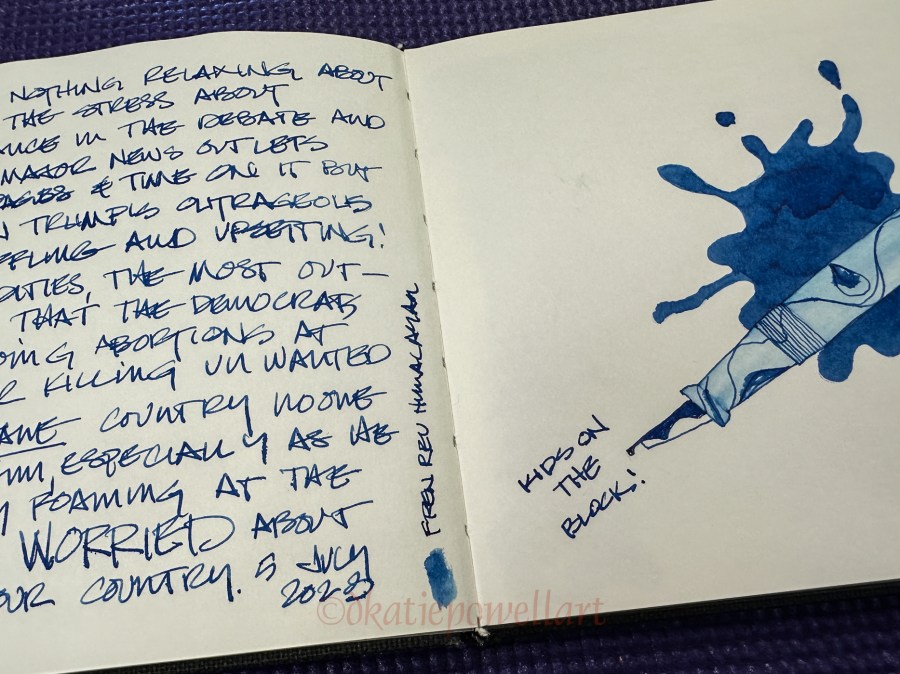 NOTHING RELAXING ABOUT
THE STRESS ABOUT
IN THE DEBATE AND
MAJOR NEWS OUTLETS
& TIME ON IT BUT
TRUMP'S OUTRAGEOUS
AND UPSETTING!
THE MOST OUT-
THAT THE DEMOCRATS
ABORTIONS AT
KILLING UNWANTED
COUNTRY NOONE
ESPECIALLY AS HE
FOAMING AT THE
WORRIED ABOUT
OUR COUNTRY. 5 JULY
FREN REU HUMALAYAN
KIDS ON
THE
BLOCK!
©okatiepowellart